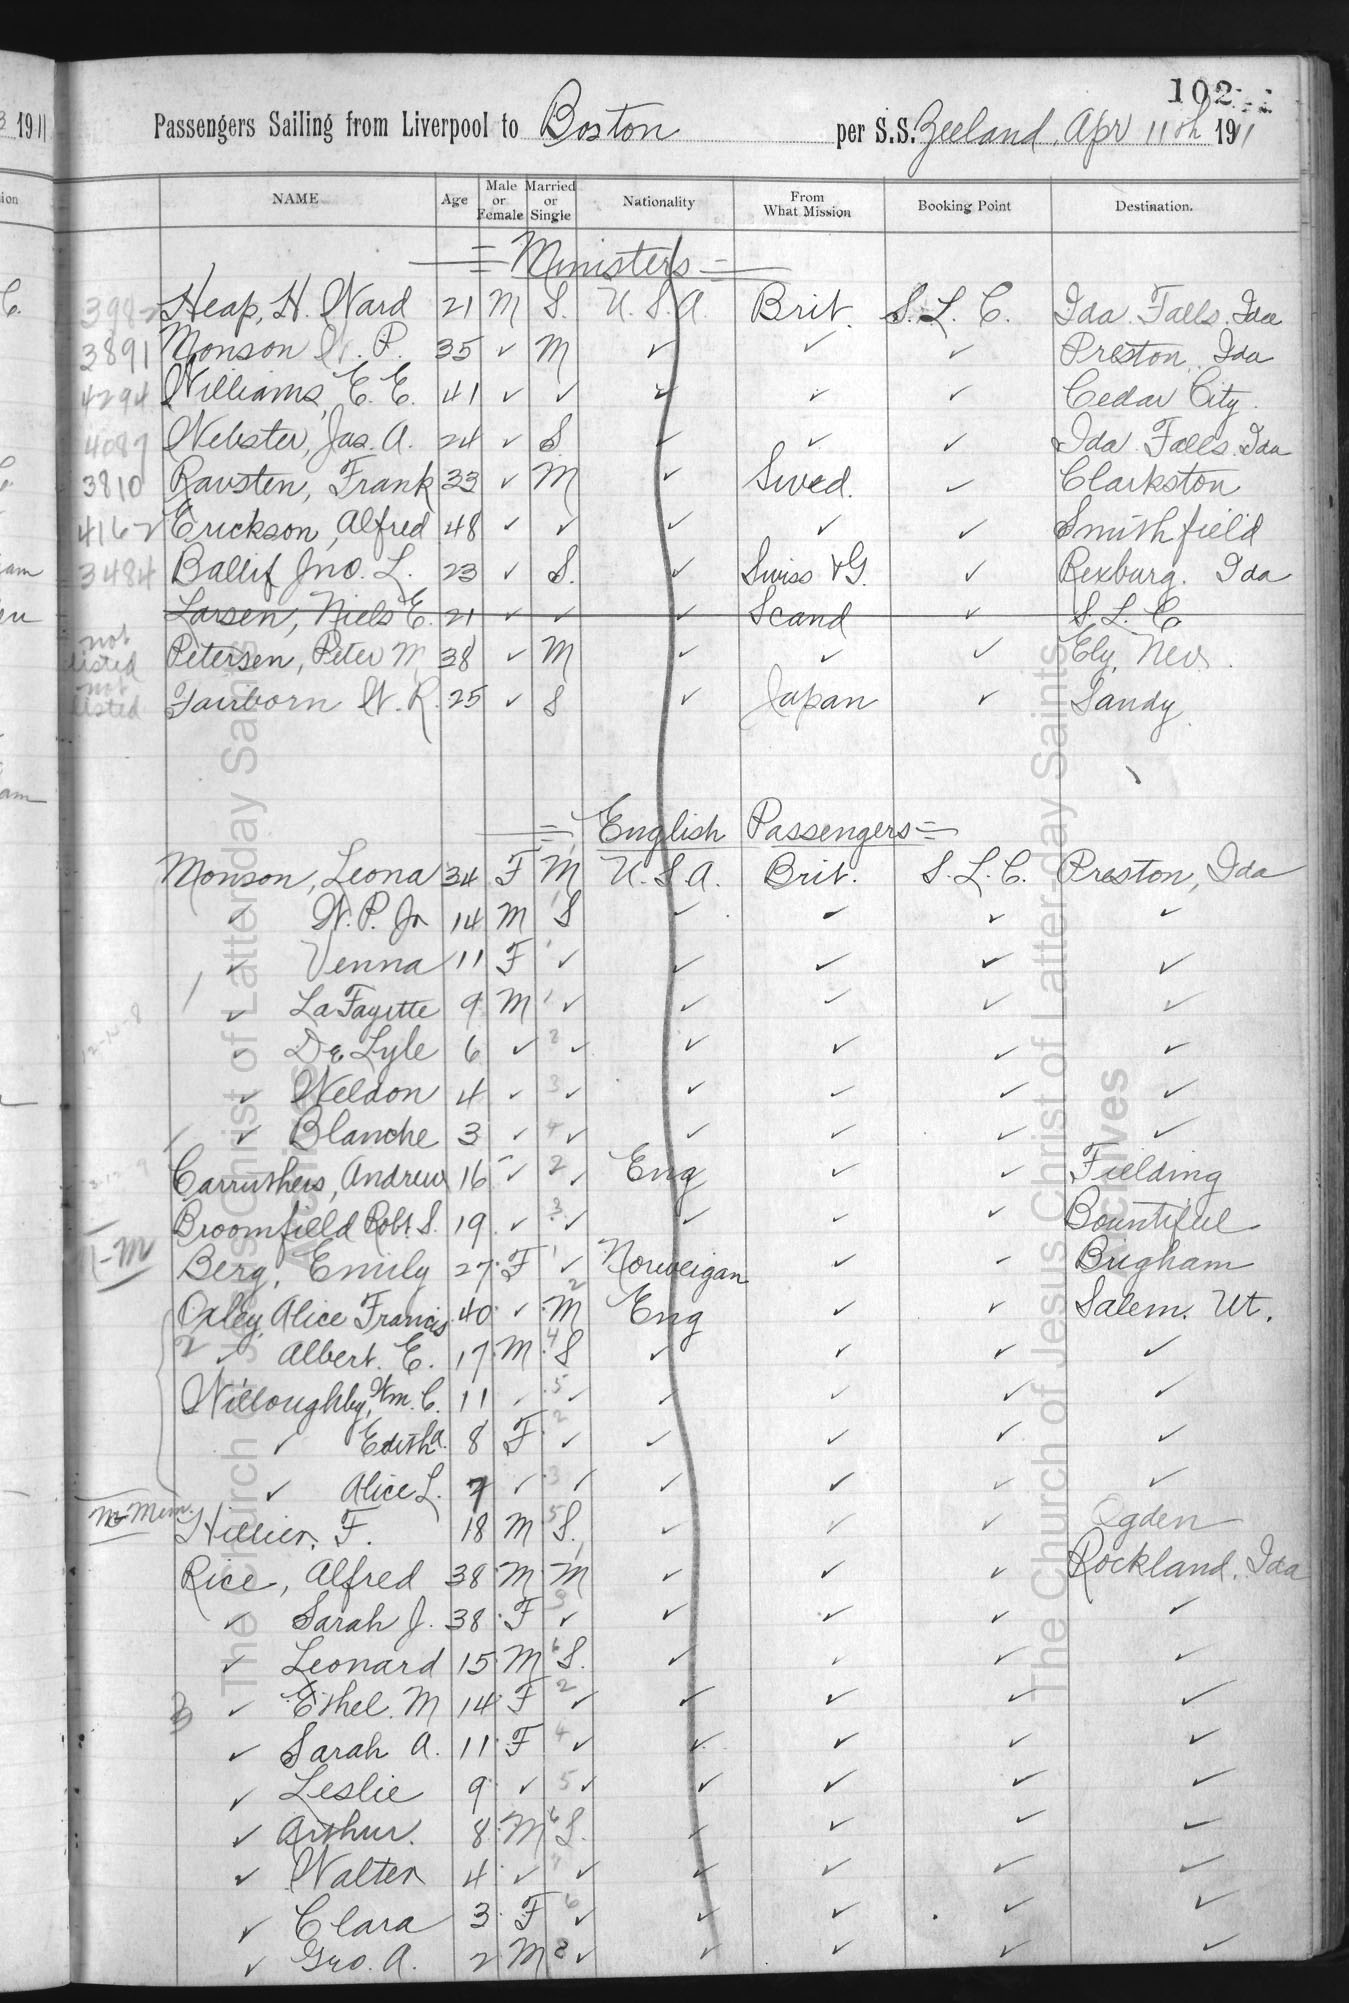 102
Passengers Sailing from Liverpool to Boston per S.S. Zeeland, Apr 11th 1911
NAME Age Male or Female Married or Single Nationality From What Mission Booking Point Destination.
= Ministers =
3982 Heap, H. Ward 21 M S. U.S.A. Brit. S.L.C. Ida Falls. Ida
3891 Monson W. P. 35 ✓ M ✓ ✓ ✓ Preston, Ida
4294 Williams, E. E. 41 ✓ ✓ ✓ ✓ ✓ Cedar City.
4087 Webster, Jas. A. 24 ✓ S ✓ ✓ ✓ Ida Falls. Ida
3810 Ravsten, Frank 33 ✓ M ✓ Swed. ✓ Clarkston
4162 Erickson, Alfred 48 ✓ ✓ ✓ ✓ ✓ Smithfield
3484 Ballif Jno. L. 23 ✓ S. ✓ Swiss & G. ✓ Rexburg. Ida
Larsen, Niels E. 21 ✓ ✓ ✓ Scand ✓ S.L.C.
not listed Petersen, Peter M. 38 ✓ M ✓ ✓ ✓ Ely, Nev.
not listed Fairborn W. R. 25 ✓ S ✓ Japan ✓ Sandy
= English Passengers =
Monson, Leona 34 F M U.S.A. Brit. S.L.C. Preston, Ida
✓ W. P. Jr 14 M S ✓ ✓ ✓ ✓
✓ Venna 11 F ✓ ✓ ✓ ✓ ✓
✓ LaFayette 9 M ✓ ✓ ✓ ✓ ✓
✓ De Lyle 6 ✓ ✓ ✓ ✓ ✓ ✓
✓ Weldon 4 ✓ ✓ ✓ ✓ ✓ ✓
✓ Blanche 3 ✓ ✓ ✓ ✓ ✓ ✓
Carruthers, Andrew 16 ✓ ✓ Eng ✓ ✓ Fielding
Broomfield Robt. S. 19 ✓ ✓ ✓ ✓ ✓ Bountiful
1-M Berg, Emily 27 F ✓ Norweigan ✓ ✓ Brigham
Oxley, Alice Francis 40 ✓ M Eng ✓ ✓ Salem. Ut.
2 ✓ Albert. E. 17 M S ✓ ✓ ✓ ✓
Willoughby, Wm. C. 11 ✓ ✓ ✓ ✓ ✓ ✓
✓ Edith A. 8 F ✓ ✓ ✓ ✓ ✓
✓ Alice L. 7 ✓ ✓ ✓ ✓ ✓ ✓
Hillier, F. 18 M S. ✓ ✓ ✓ Ogden
Rice, Alfred 38 M M ✓ ✓ ✓ Rockland. Ida
✓ Sarah J. 38 F ✓ ✓ ✓ ✓ ✓
✓ Leonard 15 M S. ✓ ✓ ✓ ✓
3 ✓ Ethel. M 14 F ✓ ✓ ✓ ✓ ✓
✓ Sarah A. 11 F ✓ ✓ ✓ ✓ ✓
✓ Leslie 9 ✓ ✓ ✓ ✓ ✓ ✓
✓ Arthur. 8 M S. ✓ ✓ ✓ ✓
✓ Walter 4 ✓ ✓ ✓ ✓ ✓ ✓
✓ Clara 3 F ✓ ✓ ✓ ✓ ✓
✓ Geo. A. 2 M ✓ ✓ ✓ ✓ ✓
The Church of Jesus Christ of Latter-day Saints
Archives
The Church of Jesus Christ of Latter-day Saints
Archives